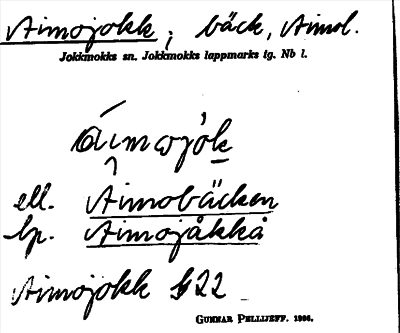 Aimojokk; bäck, Aimol.
Jokkmokks sn. Jokkmokks lappmarks tg. Nb l.
áimojòk
ell. Aimobäcken
lp. Aimojåkkå
Aimojokk 22
GUNNAR PELLIJEFF. 1966.